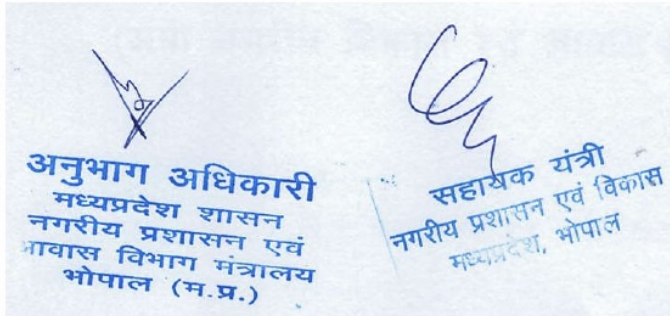 अनुभाग अधिकारी
मध्यप्रदेश शासन
नगरीय प्रशासन एवं
आवास विभाग मंत्रालय
भोपाल (म.प्र.)
सहायक यंत्री
नगरीय प्रशासन एवं विकास
मध्यप्रदेश, भोपाल